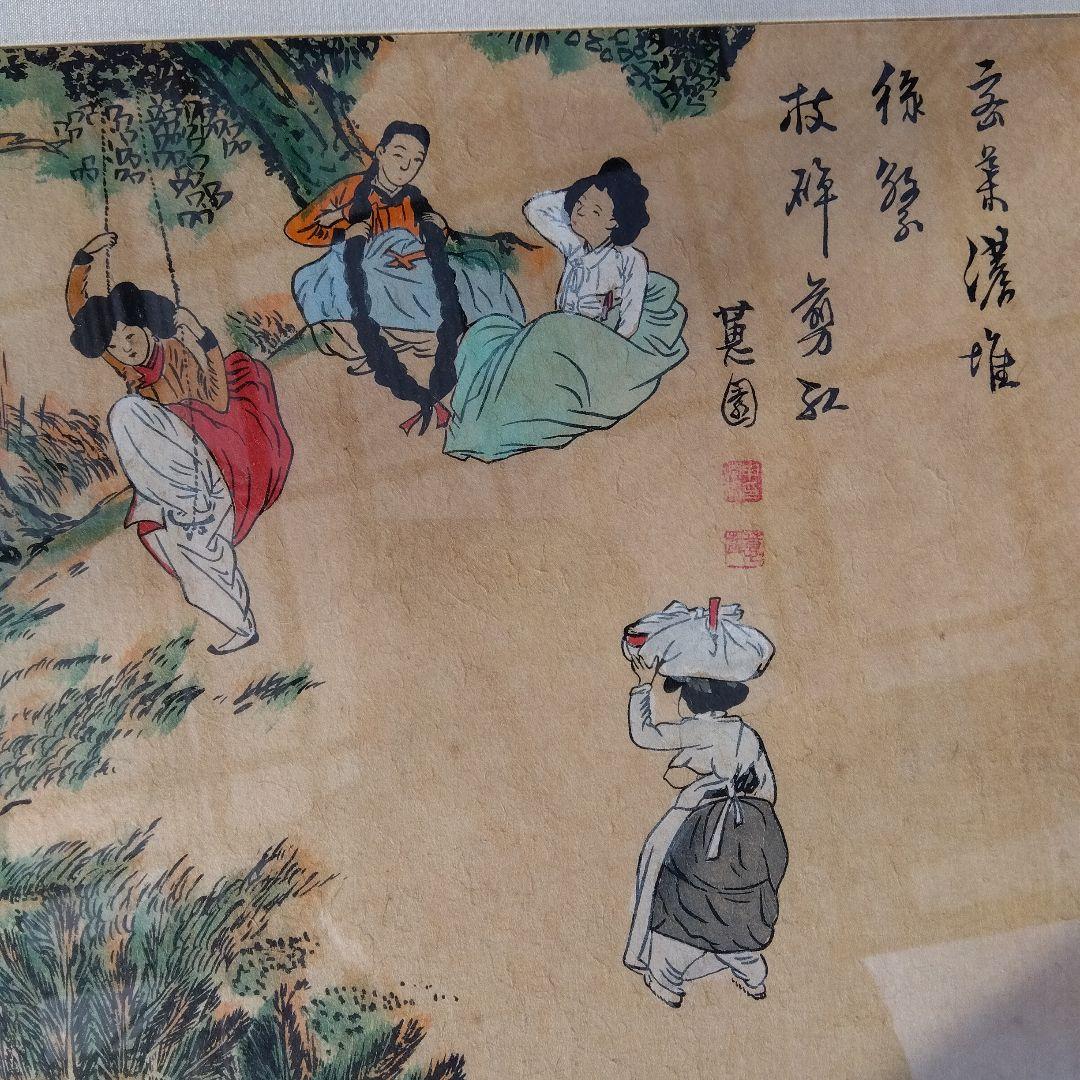 密葉濃堆
綠繁
枝碎剪紅
蕙園